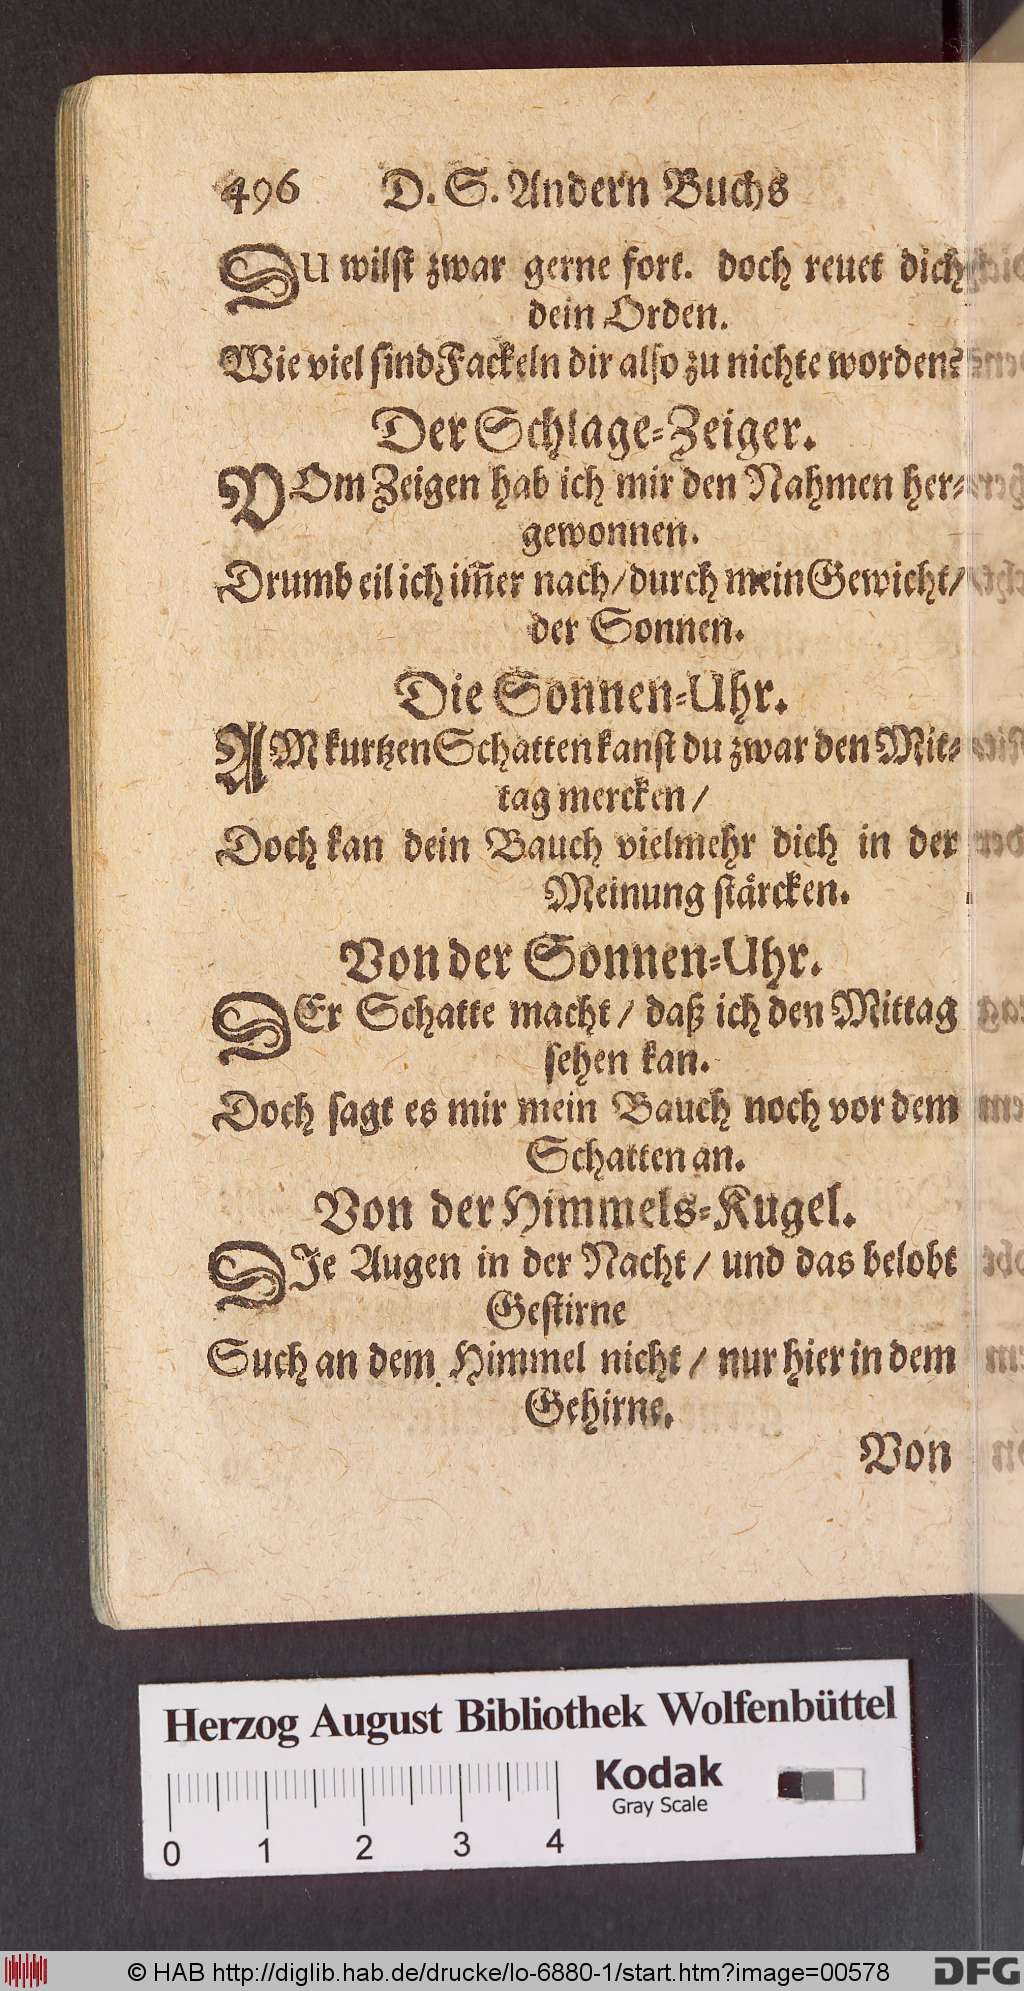 496 D. S. Andern Buchs
DU wilst zwar gerne fort. doch reuet dich
dein Orden.
Wie viel sind Fackeln dir also zu nichte worden?
Der Schlage-Zeiger.
VOm Zeigen hab ich mir den Nahmen her-
gewonnen.
Drumb eil ich im̄er nach/ durch mein Gewicht/
der Sonnen.
Die Sonnen-Uhr.
AM kurtzen Schatten kanst du zwar den Mit-
tag mercken/
Doch kan dein Bauch vielmehr dich in der
Meinung stärcken.
Von der Sonnen-Uhr.
DEr Schatte macht/ daß ich den Mittag
sehen kan.
Doch sagt es mir mein Bauch noch vor dem
Schatten an.
Von der Himmels-Kugel.
DIe Augen in der Nacht/ und das belobt
Gestirne
Such an dem Himmel nicht/ nur hier in dem
Gehirne.
Von
Herzog August Bibliothek Wolfenbüttel
Kodak
Gray Scale
0 1 2 3 4
© HAB http://diglib.hab.de/drucke/lo-6880-1/start.htm?image=00578
DFG